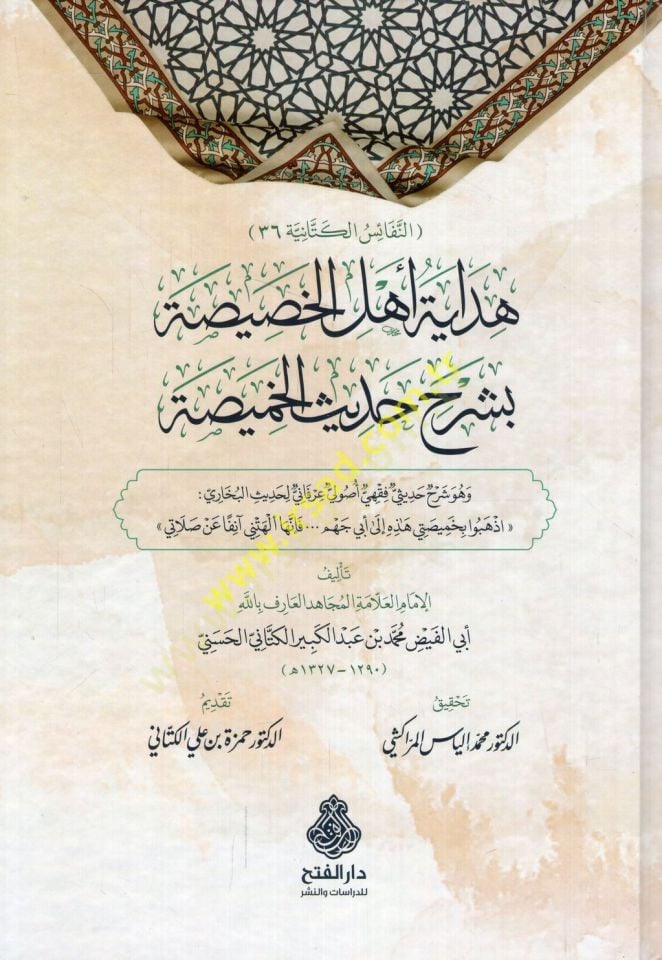 (النَّفَائِسُ الكَتَّانِيَّة ٣٦)
هِدَايَةُ أَهْلِ الخَصِيصَة
بِشَرْحِ حَدِيثِ الخَمِيصَة
وَهُوَ شَرْحٌ حَدِيثِيٌّ فِقْهِيٌّ أُصُولِيٌّ عِرْفَانِيٌّ لِحَدِيثِ البُخَارِي:
«اذْهَبُوا بِخَمِيصَتِي هَذِهِ إِلَى أَبِي جَهْم ... فَإِنَّهَا أَلْهَتْنِي آنِفًا عَنْ صَلَاتِي»
تَأْلِيفُ
الإمَامِ العَلَّامَةِ المُجَاهِدِ العَارِفِ بِاللَّهِ
أَبِي الفَيْضِ مُحَمَّد بن عَبْدِ الكَبِير الكَتَّانِيّ الحَسَنِيّ
(١٢٩٠-١٣٢٧هـ)
تَحْقِيقُ
الدكتور محمد إلياس المراكشي
تَقْدِيمُ
الدكتور حمزة بن علي الكتاني
دار الفتح
للدراسات والنشر